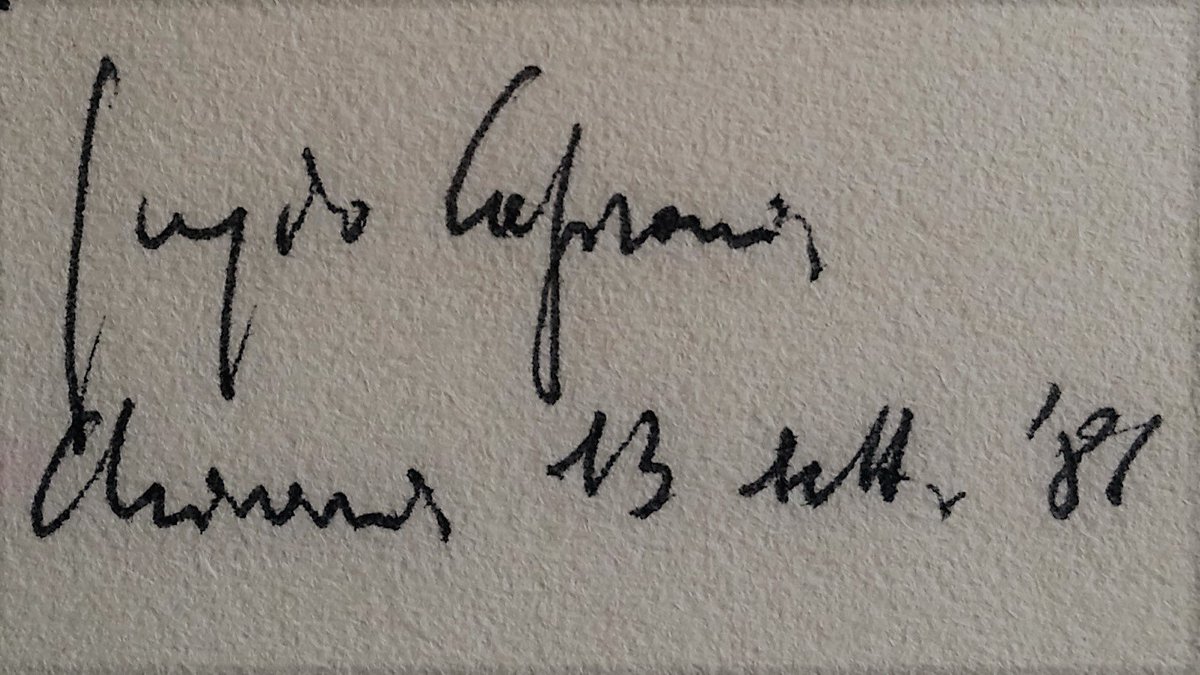 Giorgio Caproni
Chiavari 13 sett. '81